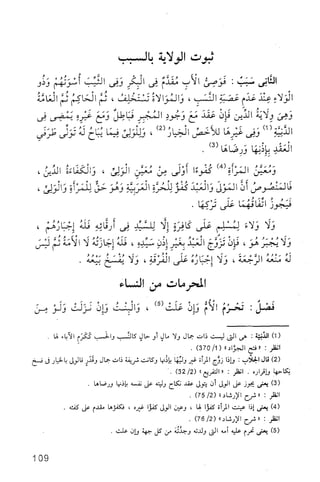 ثبوت الولاية بالسبب
الثَّانِي سَبَبٌ : فَوَصِيُّ الأَبِ مُقَدَّمٌ فِي الْبِكْرِ وَفِي الثَّيِّبِ أُسْوَتُهُمْ وَذُو
الْوَلَاءِ عِنْدَ عَدَمِ عَصَبَةِ النَّسَبِ ، وَالْمُوَالَاةُ تُسْتَخْلَفُ ، ثُمَّ الْحَاكِمُ ثُمَّ الْعَامَّةُ
وَهِيَ وِلَايَةُ الدِّينِ فَإِنْ عَقَدَ مَعَ وُجُودِ الْمُجْبِرِ فَبَاطِلٌ وَمَعَ غَيْرِهِ يَمْضِي فِي
الدَّنِيَّةِ (1) وَفِي غَيْرِهَا لِلْأَخَصِّ الْخِيَارُ (2) ، وَلِلْوَلِيِّ فِيمَا يُبَاحُ لَهُ تَوَلِّي طَرَفَيِ
الْعَقْدِ بِإِذْنِهَا وَرِضَاهَا (3) .
وَمُعَيَّنُ الْمَرْأَةِ (4) كُفُوءًا أَوْلَى مِنْ مُعَيَّنِ الْوَلِيِّ ، وَالْكَفَاءَةُ الدِّينُ ،
فَالْمَنْصُوصُ أَنَّ الْمَوْلَى وَالْعَبْدَ كُفُؤٌ لِلْحُرَّةِ الْعَرَبِيَّةِ وَهُوَ حَقٌّ لِلْمَرْأَةِ وَالْوَلِيِّ ،
فَيَجُوزُ اتِّفَاقُهُمَا عَلَى تَرْكِهَا .
وَلَا وَلَاءَ لِمُسْلِمٍ عَلَى كَافِرَةٍ إِلَّا لِلسَّيِّدِ فِي أَرِقَّائِهِ فَلَهُ إِجْبَارُهُمْ ،
وَلَا يُجْبَرُ هُوَ ، فَإِنْ تَزَوَّجَ الْعَبْدُ بِغَيْرِ إِذْنِ سَيِّدِهِ ، فَلَهُ إِجَازَتُهُ لَا الْأَمَةُ ثُمَّ لَيْسَ
لَهُ مَنْعُهُ الرَّجْعَةَ ، وَلَا إِجْبَارُهُ عَلَى الْفُرْقَةِ ، وَلَا يُفْسَخُ بَيْعُهُ .
المحرمات من النساء
فَصْلٌ : تَحْرُمُ الْأُمُّ وَإِنْ عَلَتْ (5) ، وَالْبِنْتُ وَإِنْ نَزَلَتْ وَلَوْ مِنْ
(1) الدَّنِيَّة : هي التي ليست ذات جمال ولا مال أو حال كالنَّسب والحسب كَكَرَمِ الآباء لها .
انظر : « فتح الجوَّاد » (370/1) .
(2) قال الجلاب : وإذا زوَّج المرأة غير وليِّها بإذنها وكانت شريفة ذات جمال وقَدْرٍ فالولي بالخيار في فسخ
نكاحها وإقراره . انظر : « التفريع » (32/2) .
(3) يعني يجوز على الولي أن يتولى عقد نكاح وليته على نفسه بإذنها ورضاها .
انظر : « شرح الإرشاد » (75/2) .
(4) يعني إذا عينت المرأة كفؤًا لها ، وعين الولي كفؤًا غيره ، فكفؤها مقدم على كفئه .
انظر : « شرح الإرشاد » (76/2) .
(5) يعني تحرم عليه أمه التي ولدته وجدَّته من كل جهة وإن علت .
109